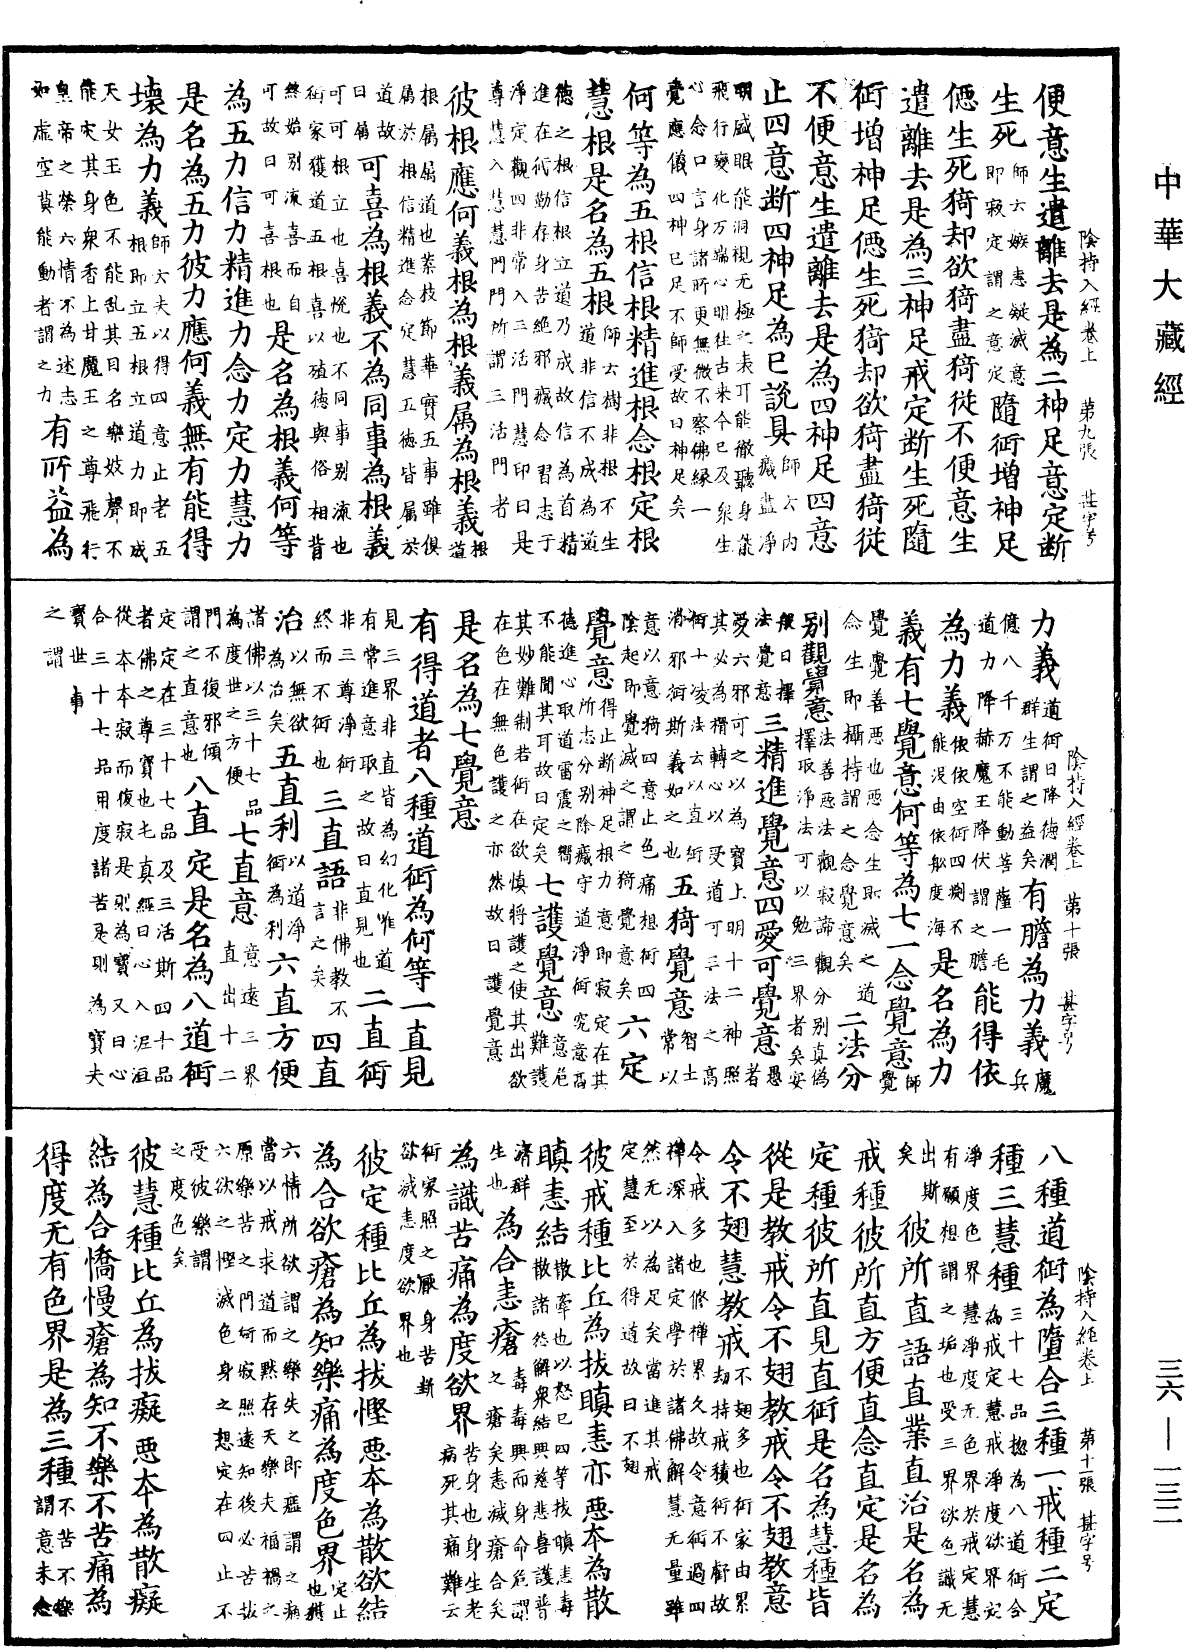 中華大藏經
便意生遣離去是為二神足意定断
陰持入經卷上　第九張　甚字号
生死師云嫉恚疑滅意即寂定謂之意定隨衍增神足
偲生死猗却欲猗盡猗從不便意生
遣離去是為三神足戒定断生死隨
衍增神足偲生死猗却欲猗盡猗從
不便意生遣離去是為四神足四意
止四意断四神足為已說具師云内癡盡淨
明盛眼能洞視无極之表耳能徹聽身能
飛行變化万端心明往古来今已及衆生
心念口言身諸所更無微不察佛縁一
覺應儀四神已足不師受故曰神足矣
何等為五根信根精進根念根定根
慧根是名為五根師云樹非根不生道非信不成為道
德之根信根立道乃成故信為首精
進在術勤存身苦絕邪癡念習志于
淨定觀四非常入三活門慧印曰是
尊慧入慧慧門門所謂三活門者
彼根應何義根為根義属為根義根道
根属属道也萘枝節華實五事雖俱
属於根信精進念定慧五德皆属於
道故曰属可喜為根義不為同事為根義
可可根立也喜悅也不同事别流也
術家獲道五根喜以殖德與俗相背
終始别流喜而自可故曰可喜根也是名為根義何等
為五力信力精進力念力定力慧力
是名為五力彼力應何義無有能得
壞為力義師大夫以得四意止老五根即立五根立道力即成
天女玉色不能乱其目名樂妓聲不
能灾其身衆香上甘魔王之尊飛行
皇帝之榮六情不為迷志如虚空莫能動者謂之力有所益為
力義道術日降德潤群生謂之益矣有膽為力義魔兵
陰持入經卷上　第十張　甚字号
億八千万不能動菩薩一毛道力降赫魔王降伏謂之膽能得依
為力義依依空術四渕不能没由依舩度海是名為力
義有七覺意何等為七一念覺意師覺
覺覺善惡也惡念生即滅之道
念生即攝持謂之念覺意矣二法分
别觀覺意法善惡法觀寂諦觀分别真偽擇取淨法可以勉三界者矣安
般曰擇法覺意三精進覺意四愛可覺意愚者
愛六邪可之以為寶上明十二神照
其必為禍轉心以受道可三法之高
術十淩法去以直術可以智士
消邪術斯義如之也五猗覺意常以
意以意猗四意止色痛想術四
陰起即覺滅之謂之猗覺意矣六定
覺意得止断神足根力意即寂定在其所志分别除癡守道淨術究意高
德進心取道雷震之嚮意危
不能聞其耳故曰定矣七護覺意難護
其妙難制若術在欲慎將護之使其出欲
在色在無色護之亦然故曰護覺意
是名為七覺意
有得道者八種道術為何等一直見
見三界非直皆為幻化唯道
有常進意取之故曰直見也二直術
非三尊淨術終而不術也三直語非佛教不言之矣四直
治以無欲為治矣五直利以道淨術為利六直方便
諸佛以三十七品為度世之方便七直意意遠三界直出十二
門不復邪傾謂之直意也八直定是名為八道術
定定在三十七品及三活斯四十品
者佛之尊寶也七真經曰心入泥洹
從本本寂而復寂是則為寶又曰心
合三十七品用度諸苦是則為寶夫
寶世事之謂
八種道術為墮合三種一戒種二定
陰持入經卷上　第十一張　甚字号
種三慧種三十七品揔為八道術合為戒定慧戒淨度欲界定
淨度色界慧淨度无色界於戒定慧
有願想謂之垢也受三界欲色識无
出斯矣彼所直語直業直治是名為
戒種彼所直方便直念直定是名為
定種彼所直見直術是名為慧種皆
從是教戒令不翅教戒令不翅教意
令不翅慧教戒不翅多也術家由累劫持戒積術不虧故
令戒多也修禪累久故令意術過四
禪深入諸定學於諸佛解慧无量雖
然无以為足矣當進其戒
定慧至於得道故曰不翅
彼戒種比丘為拔瞋恚亦悪本為散
瞋恚結散牽也以怒已四等拔瞋恚毒散諸怨解衆結興慈悲喜護普
濟群生也為合恚瘡毒毒興而身命危謂之瘡矣恚滅瘡合矣
為識苦痛為度欲界苦身也身生老病死其痛難云
術家照之厭身苦断欲滅恚度欲界也
彼定種比丘為拔慳悪本為散欲結
為合欲瘡為知樂痛為度色界定止也獄
六情所欲謂之樂失之即瘟謂之痛
當以戒求道而黙存天樂夫福禍之
原樂苦之門術寂照遠知後必苦故拔
六欲之慳滅色身之想定在四止不
受彼樂謂之度色矣
彼慧種比丘為拔癡悪本為散癡
結為合憍慢瘡為知不樂不苦痛為
得度无有色界是為三種不苦不樂謂意未念
三六—一三二